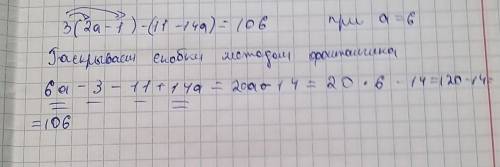 3(2a-1)-(11-14a)=106 при a=6
Раскрываем скобки методом фонтанчика
6a-3-11+14a=20a-14=20·6-14=120-14=
=106